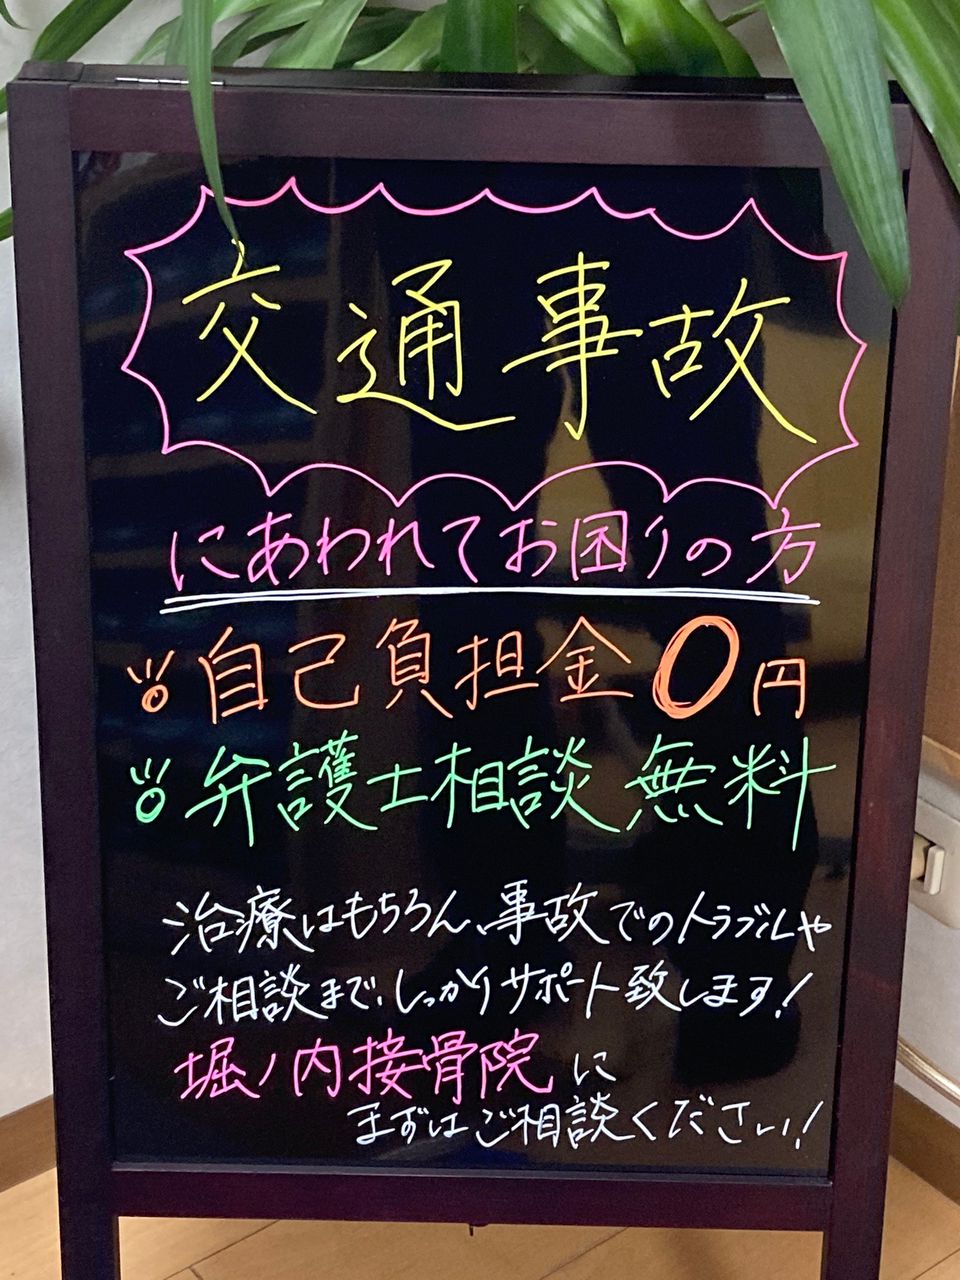 交通事故
にあわれてお困りの方
自己負担金0円
弁護士相談無料
治療はもちろん、事故でのトラブルや
ご相談まで、しっかりサポート致します!
堀ノ内接骨院に
まずはご相談ください!